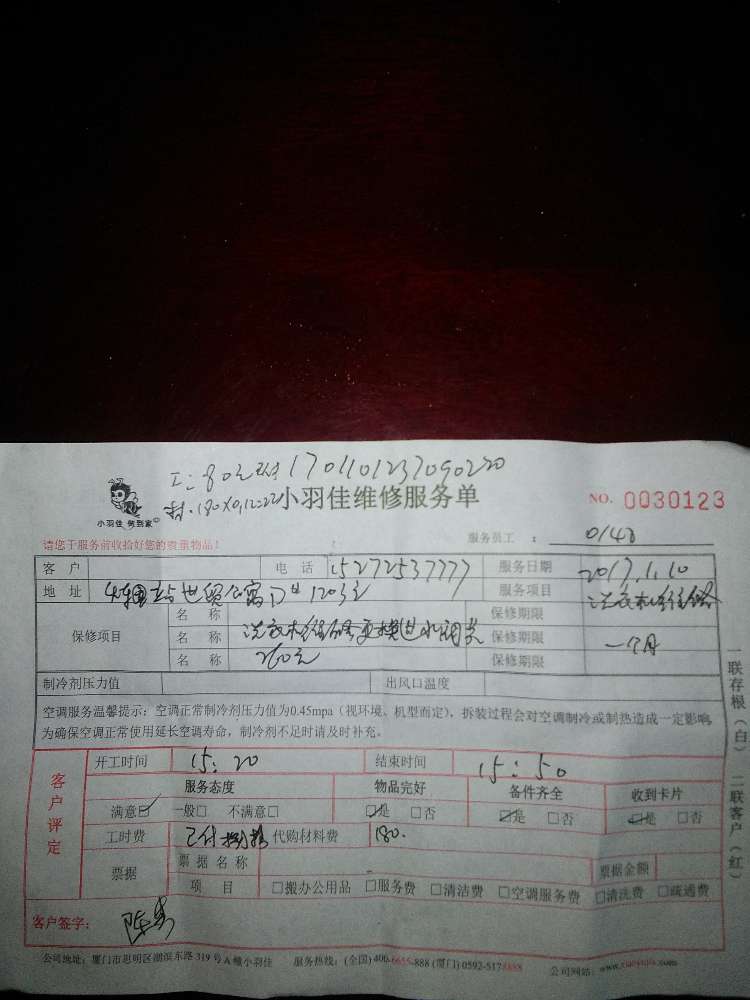 工:80元 1701101237090220
材:180X0.12=22
小羽佳 帮到家
小羽佳维修服务单
NO. 0030123
请您于服务前收拾好您的贵重物品!
服务员工 : 0148
客 户 电 话 15272537777 服务日期 2017.1.10
地 址 世贸公寓 1203室 服务项目 洗衣机维修
保修项目
名 称 保修期限
名 称 洗衣机维修更换进水阀 保修期限 一个月
名 称 260元 保修期限
制冷剂压力值 出风口温度
空调服务温馨提示:空调正常制冷剂压力值为0.45mpa(视环境、机型而定),拆装过程会对空调制冷或制热造成一定影响,
为确保空调正常使用延长空调寿命,制冷剂不足时请及时补充。
客户评定
开工时间 15:20 结束时间 15:50
服务态度 物品完好 备件齐全 收到卡片
满意☑ 一般□ 不满意□ ☑是 □否 ☑是 □否 ☑是 □否
工时费 已付 代购材料费 180.
票据 票 据 名 称 票据金额
项 目 □搬办公用品 □服务费 □清洁费 □空调服务费 □清洗费 □疏通费
客户签字:
公司地址:厦门市思明区湖滨东路 319 号 A 幢小羽佳 服务热线:(全国) 400-6655-888 (厦门) 0592-5178888 公司网站:www.xiaoyujia.com
一联存根(白) 二联客户(红)